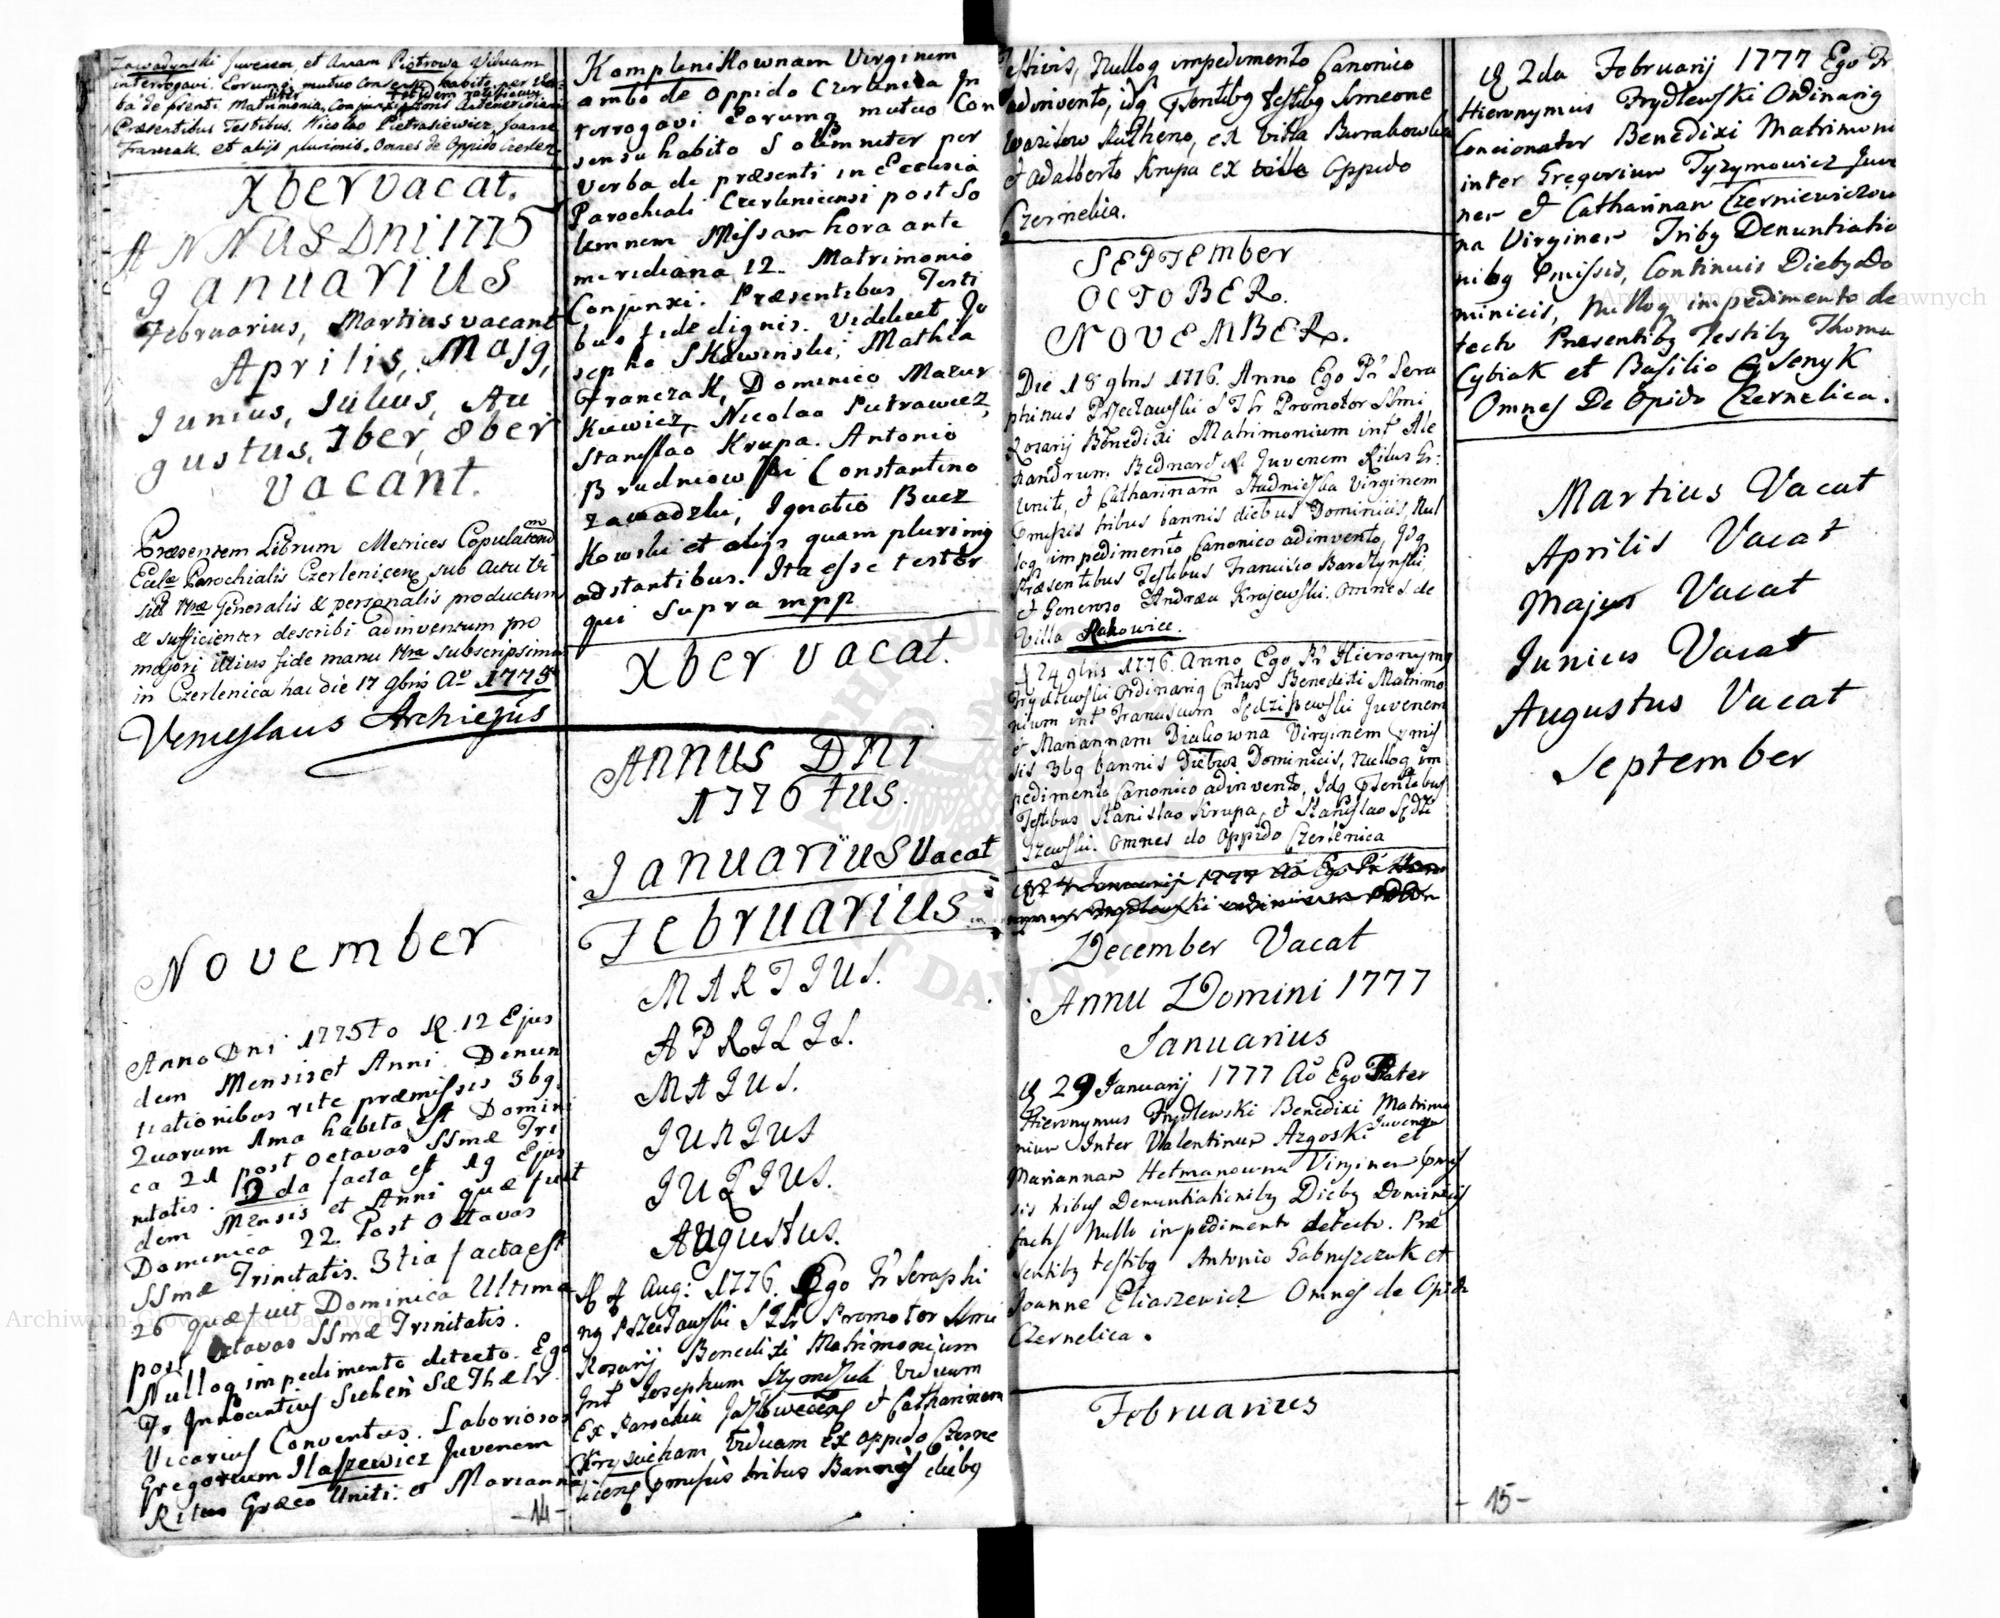 Zawadynski Juvenem, et Annam Piotrowa Viduam
interrogavi. Eorumq mutuo Consensu habito per Ver
ba de præsenti Matrimonio Conjunxi horis Antemeridianis
Præsentibus Testibus. Nicolao Pietrasiewicz, Joanne
Franczak. et alijs plurimis. Omnes de Oppido Czerlen
Xber vacat.
ANNUS DNI 1775
Januarius
Februarius, Martius vacant
Aprilis, Majg,
Junius, Julius, Au
gustus, 7ber, 8ber
vacant.
Præsentem Librum Metrices Copulatorum
Eccle Parochialis Czerlenicens sub actu Vi
sitt Nræ Generalis & personalis productum
& sufficienter describi adinventum pro
majori illius fide manu Nra subscripsimus
in Czerlenica hac die 17 9bris Ao 1775
Venceslaus Archiejus
November
Anno Dni 1775to d. 12 Ejus
dem Mensis et Anni Denun
tiationibus rite præmissis 3bg
Quarum 1ma habita est Domini
ca 21 post octavas SSmæ Tri
nitatis. 2da facta est 19 Ejus
dem Mensis et Anni quæ fuit
Domenica 22. Post Octavas
SSmæ Trinitatis. 3tia facta est
26 quæ fuit Dominica Ultima
post Octavas SSmæ Trinitatis.
Nulloq impedimento detecto. Ego
Fr Innocentius
Vicarius Conventus. Laboriosos
Gregorium Ilaszewicz Juvenem
Ritus Græco Uniti. et Marianna
-14-
Komplenikownam Virginem
ambo de Oppido Czerlenica In
terrogavi Eorumq mutuo Con
sensu habito Solemniter per
verba de præsenti in Ecclesia
Parochiali Czerlenicensi post So
lemnem Missam hora ante
meridiana 12. Matrimonio
Conjunxi. Præsentibus Testi
bus fide dignis. Videlicet Jo
sepho Skowinski, Mathia
Franczak, Dominico Mazur
kiewicz, Nicolao Pietrawicz,
Stanislao Krupa. Antonio
Brudniowski Constantino
Zawadzki, Ignatio Bucz
kowski et alijs quam plurimig
adstantibus. Ita esse testor
qui Supra mpp
Xber vacat.
ANNUS DNI
1776tus.
Januarius Vacat
Februarius
MARTIUS.
APRILIS.
MAJUS.
JUNIUS
JULIUS.
Augustus.
Aug: 1776. Ego Fr Seraphi
ng Przecławski Promotor SSmi
Rosarij Benedixi Matrimonium
Int Josephum Szymczuk Viduum
Ex Parochia et Catharinam
Viduam Ex oppido Czerne
licens præmissis tribus Bannis diebg
festivis, Nulloq impedimento Canonico
adinvento, idq præsentibg testibg Simeone
Wasilow Rutheno, ex Villa
et Adalberto Krupa ex villa Oppido
Czernelica.
SEPTEMBER
OCTOBER.
NOVEMBER.
Die 18 9bris 1776. Anno Ego Pr Sera
phinus Przecławski Promotor SSmi
Rosarij Benedixi Matrimonium int Ale
xandrum Juvenem Ritus Gr:
Unit, et Catharinam Virginem
præmissis tribus bannis diebus Dominicis, Nul
loq impedimento Canonico adinvento, Idq
Præsentibus Testibus Francisco
et Generoso Andræa Krajewski. omnes de
Villa Rakowiec.
d 24 9bris 1776. Anno Ego Pr Hieronymg
Frydlewski Ordinarig Benedixi Matrimo
nium int Franciscum Juvenem
et Mariannam Virginem præmis
sis 3bg bannis Diebus Dominicis, nulloq im
pedimento Canonico adinvento, Idq præsentibus
Testibus Stanislao Krupa, et Stanislao
omnes de Oppido Czerlenica
December Vacat
Anno Domini 1777
Januarius
d 29 Januarij 1777 Ao Ego Pater
Hieronymus Frydlewski Benedixi Matrimo
nium Inter Valentinum Azgoski Juvenem et
Mariannam Hetmanowna Virginem præmis
sis tribus Denuntiationibg Diebg Dominicis
factis Nullo impedimento detecto. Præ
sentibg testibg Antonio et
Joanne Eliaszewicz Omnes de Opido
Czernelica.
Februarius
d 2da Februarij 1777 Ego Fr
Hieronymus Frydlewski Ordinarig
Concionator Benedixi Matrimoni
inter Gregorium Tyzymowicz Juve
nem et Catharinam Czerniewiczow
na Virginem Tribg Denuntiatio
nibg præmissis, Continuis Diebg Do
minicis, Nulloq impedimento de
tecto Præsentibg Testibg Thoma
Cybiak et Basilio Senyk
Omnes De Opido Czernelica.
Martius Vacat
Aprilis Vacat
Majus Vacat
Junius Vacat
Augustus Vacat
September
-15-